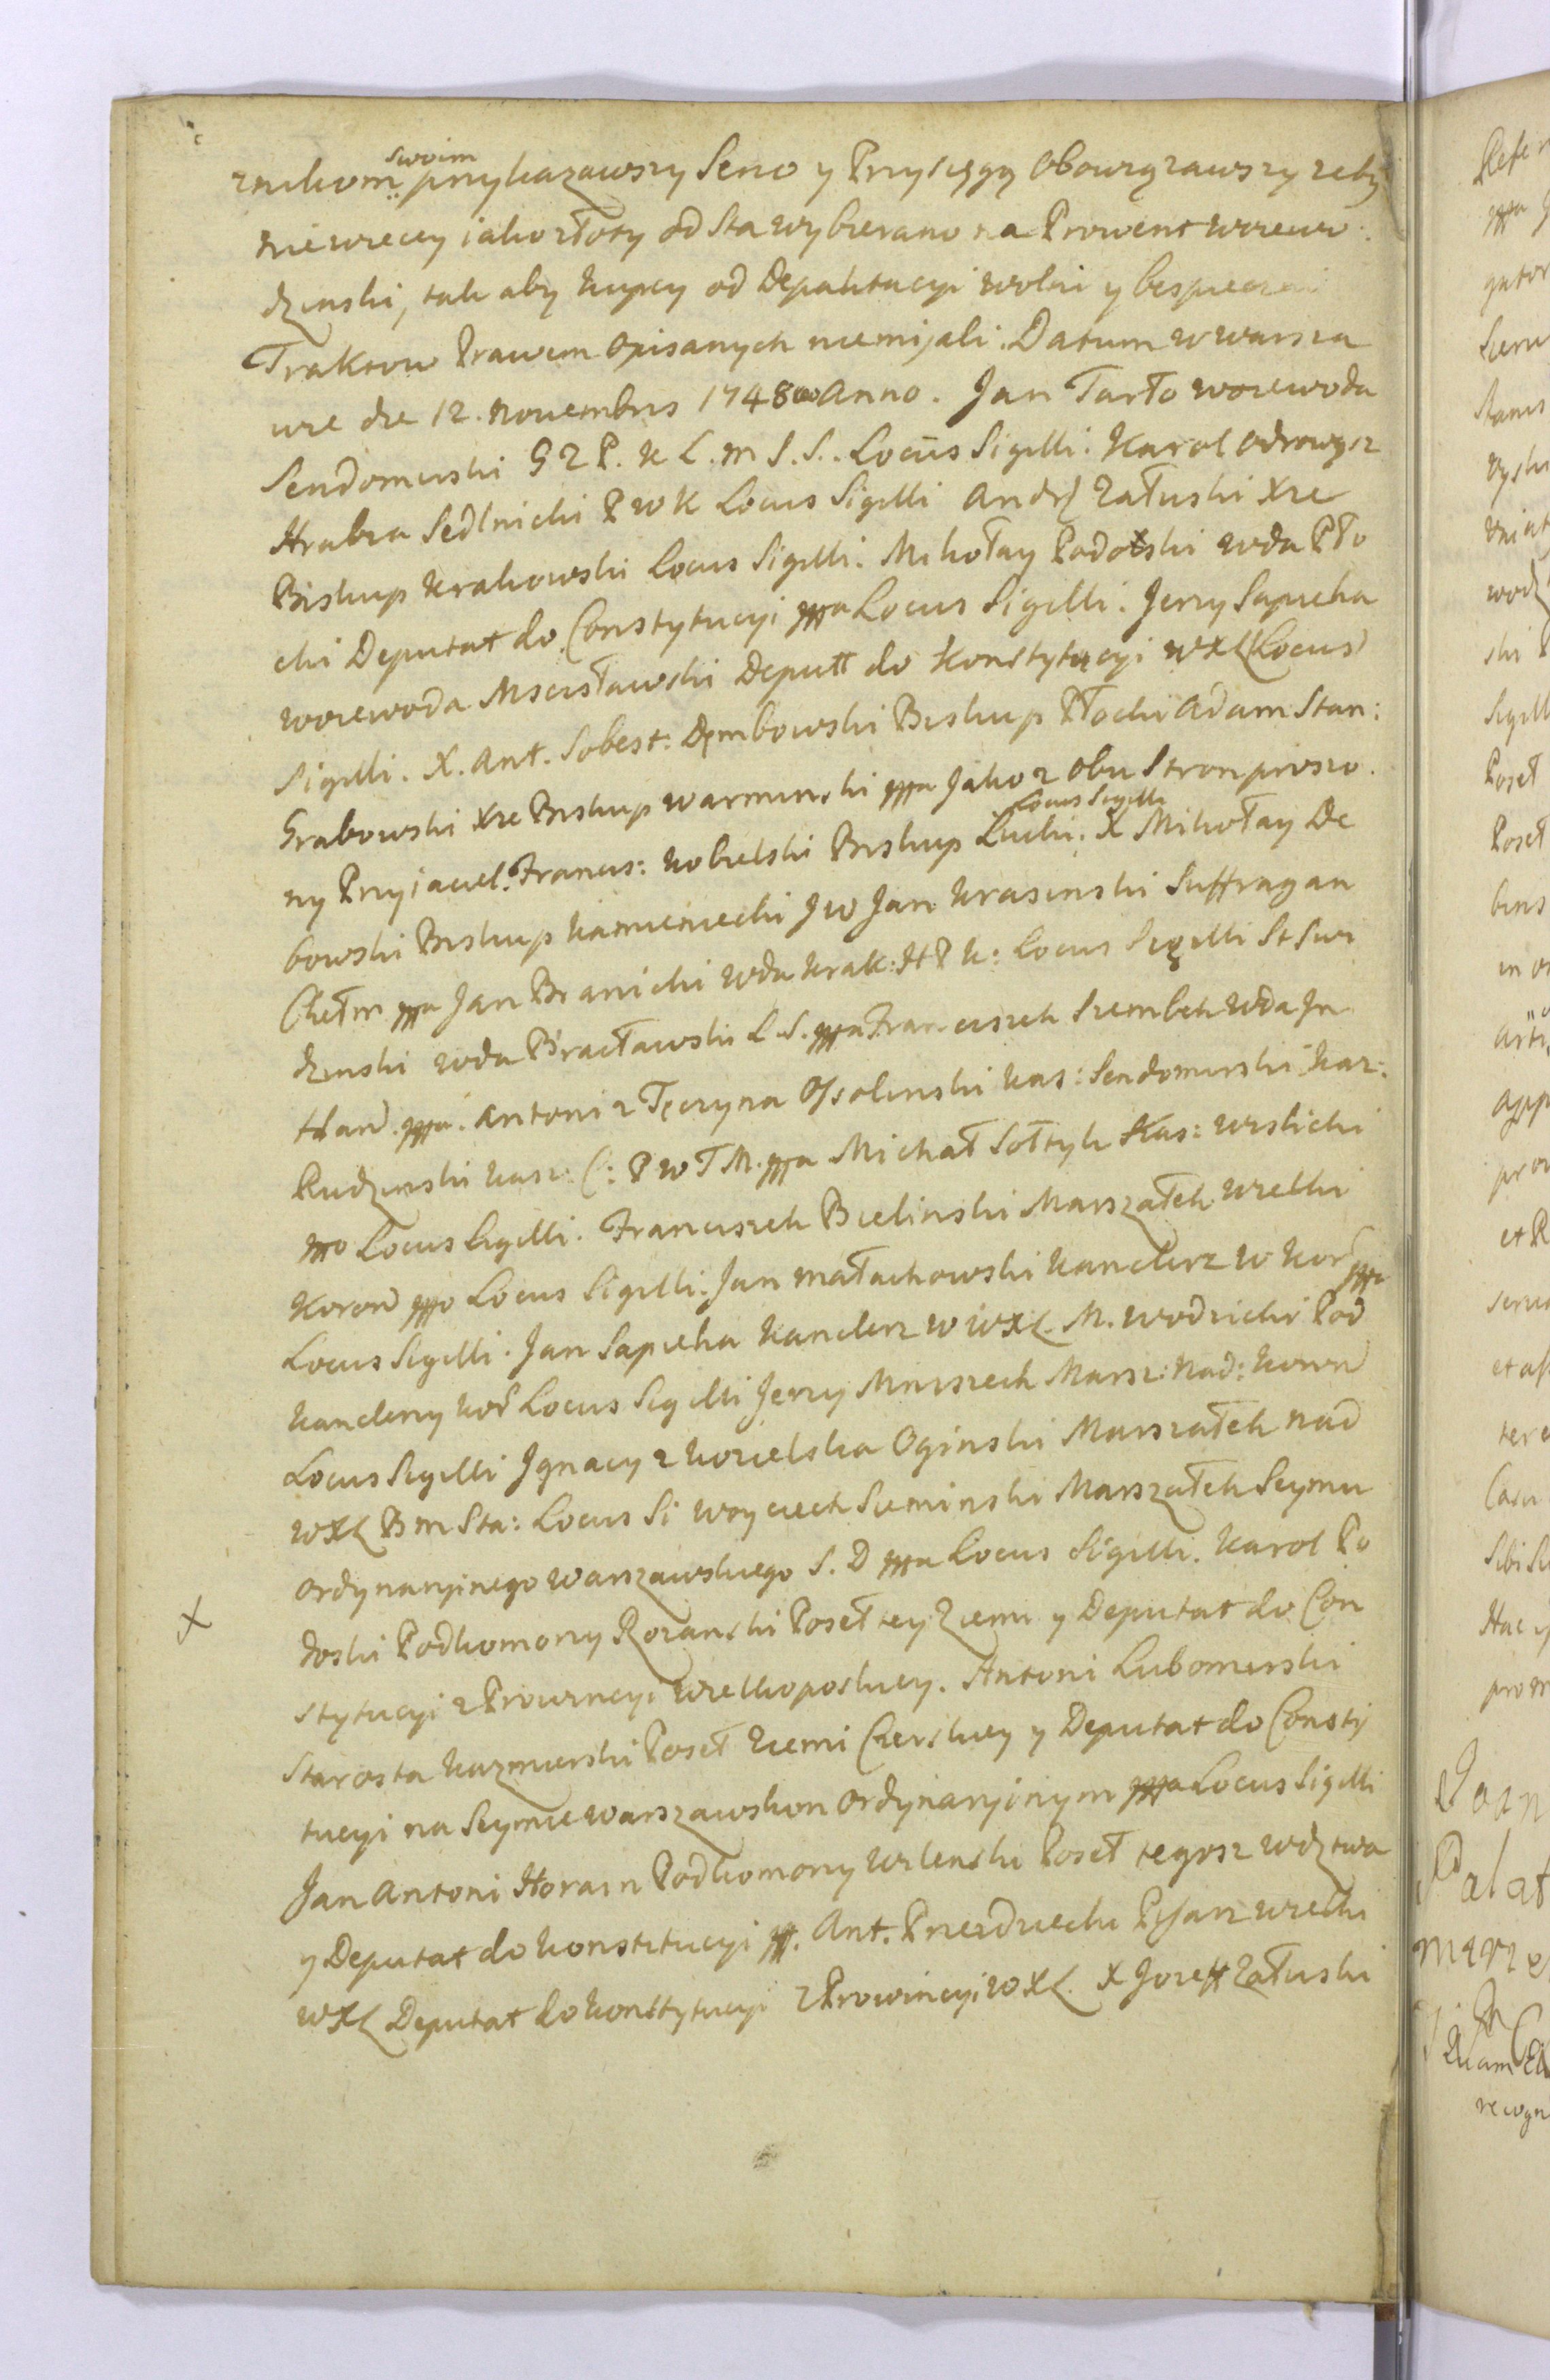 znikom swoim przykazawszy Serio y Przysięgą obowiązawszy zeby
niewięcey iako złoty od sta wybierano na Prowent woiewo:
dzinski, tak aby kupcy od Depaktacyi wolni y bespieczni
Traktow Prawem opisanych niemijali. Datum w warsza
wie die 12. novembris 1748 anno. Jan Tarło woiewoda
Sendomirski G Z P. K L. m S. S.. Locus Sigilli. Karol odrowąz
Hrabia Sedlnicki P W K Locus Sigilli Andrz Załuski Xże
Biskup krakowski Locus Sigilli. Mikołay Podoski wda Pło
cki Deputat do Constytucyi mpp Locus Sigilli. Jerzy Sapieha
woiewoda Mscisławski Deputt do Konstytucyi WXL Locus
Sigilli. X. Ant. Sobest: Dęmbowski Biskup Płocki Adam Stan:
Grabowski Xże Biskup warminski mpp Jako z obu Stron proszo.
ny Przyiaciel. Francis: kobielski Biskup Łucki. Locus Sigilli X Mikołay De
bowski Biskup kamieniecki J W Jan Krasinski Suffragan
Chełm mpp Jan Branicki wda Krak: H P K: Locus Sigilli St Swi
dzinski wda Bracławski L. S. mpp Franciszek Szembek wda In
fland. mpp. Antoni z Tęczyna Ossolinski kas: Sendomirski kaz:
Rudzinski kasz: C: P W T M. mpp Michał Sołtyk Kas: wislicki
mpp Locus Sigilli. Franciszek Bielinski Marszałek wielki
Koron mpp Locus Sigilli. Jan małachowski kanclerz W Kor mpp
Locus Sigilli. Jan Sapieha kanclerz W WXL. M. wodzicki Pod
kanclerzy kor Locus Sigilli Jerzy Mniszech Marsz: Nad: koron
Locus Sigilli Jgnacy z kozielska Oginski Marszałek nad
WXL B m Sta: Locus Si woyciech Sieminski Marszałek Seymu
ordynaryinego warszawskiego S. D mpp Locus Sigilli. Karol Po
doski Podkomorzy Rozanski Poseł tey Ziemi y Deputat do Con
stytucyi z Prowincyi wielkopolskiey. Antoni Lubomirski
Starosta kazmierski Poseł Ziemi Czerskiey y Deputat do Consty
tucyi na Seymie warszawskim ordynaryinym mpp Locus Sigilli
Jan Antoni Horain Podkomorzy wilenski Poseł tegosz wdztwa
y Deputat do konstitucyi mp. Ant. Przezdziecki Pisarz wielki
WXL Deputat do konstytucyi z Prowincyi WXL. X Jozeff Załuski